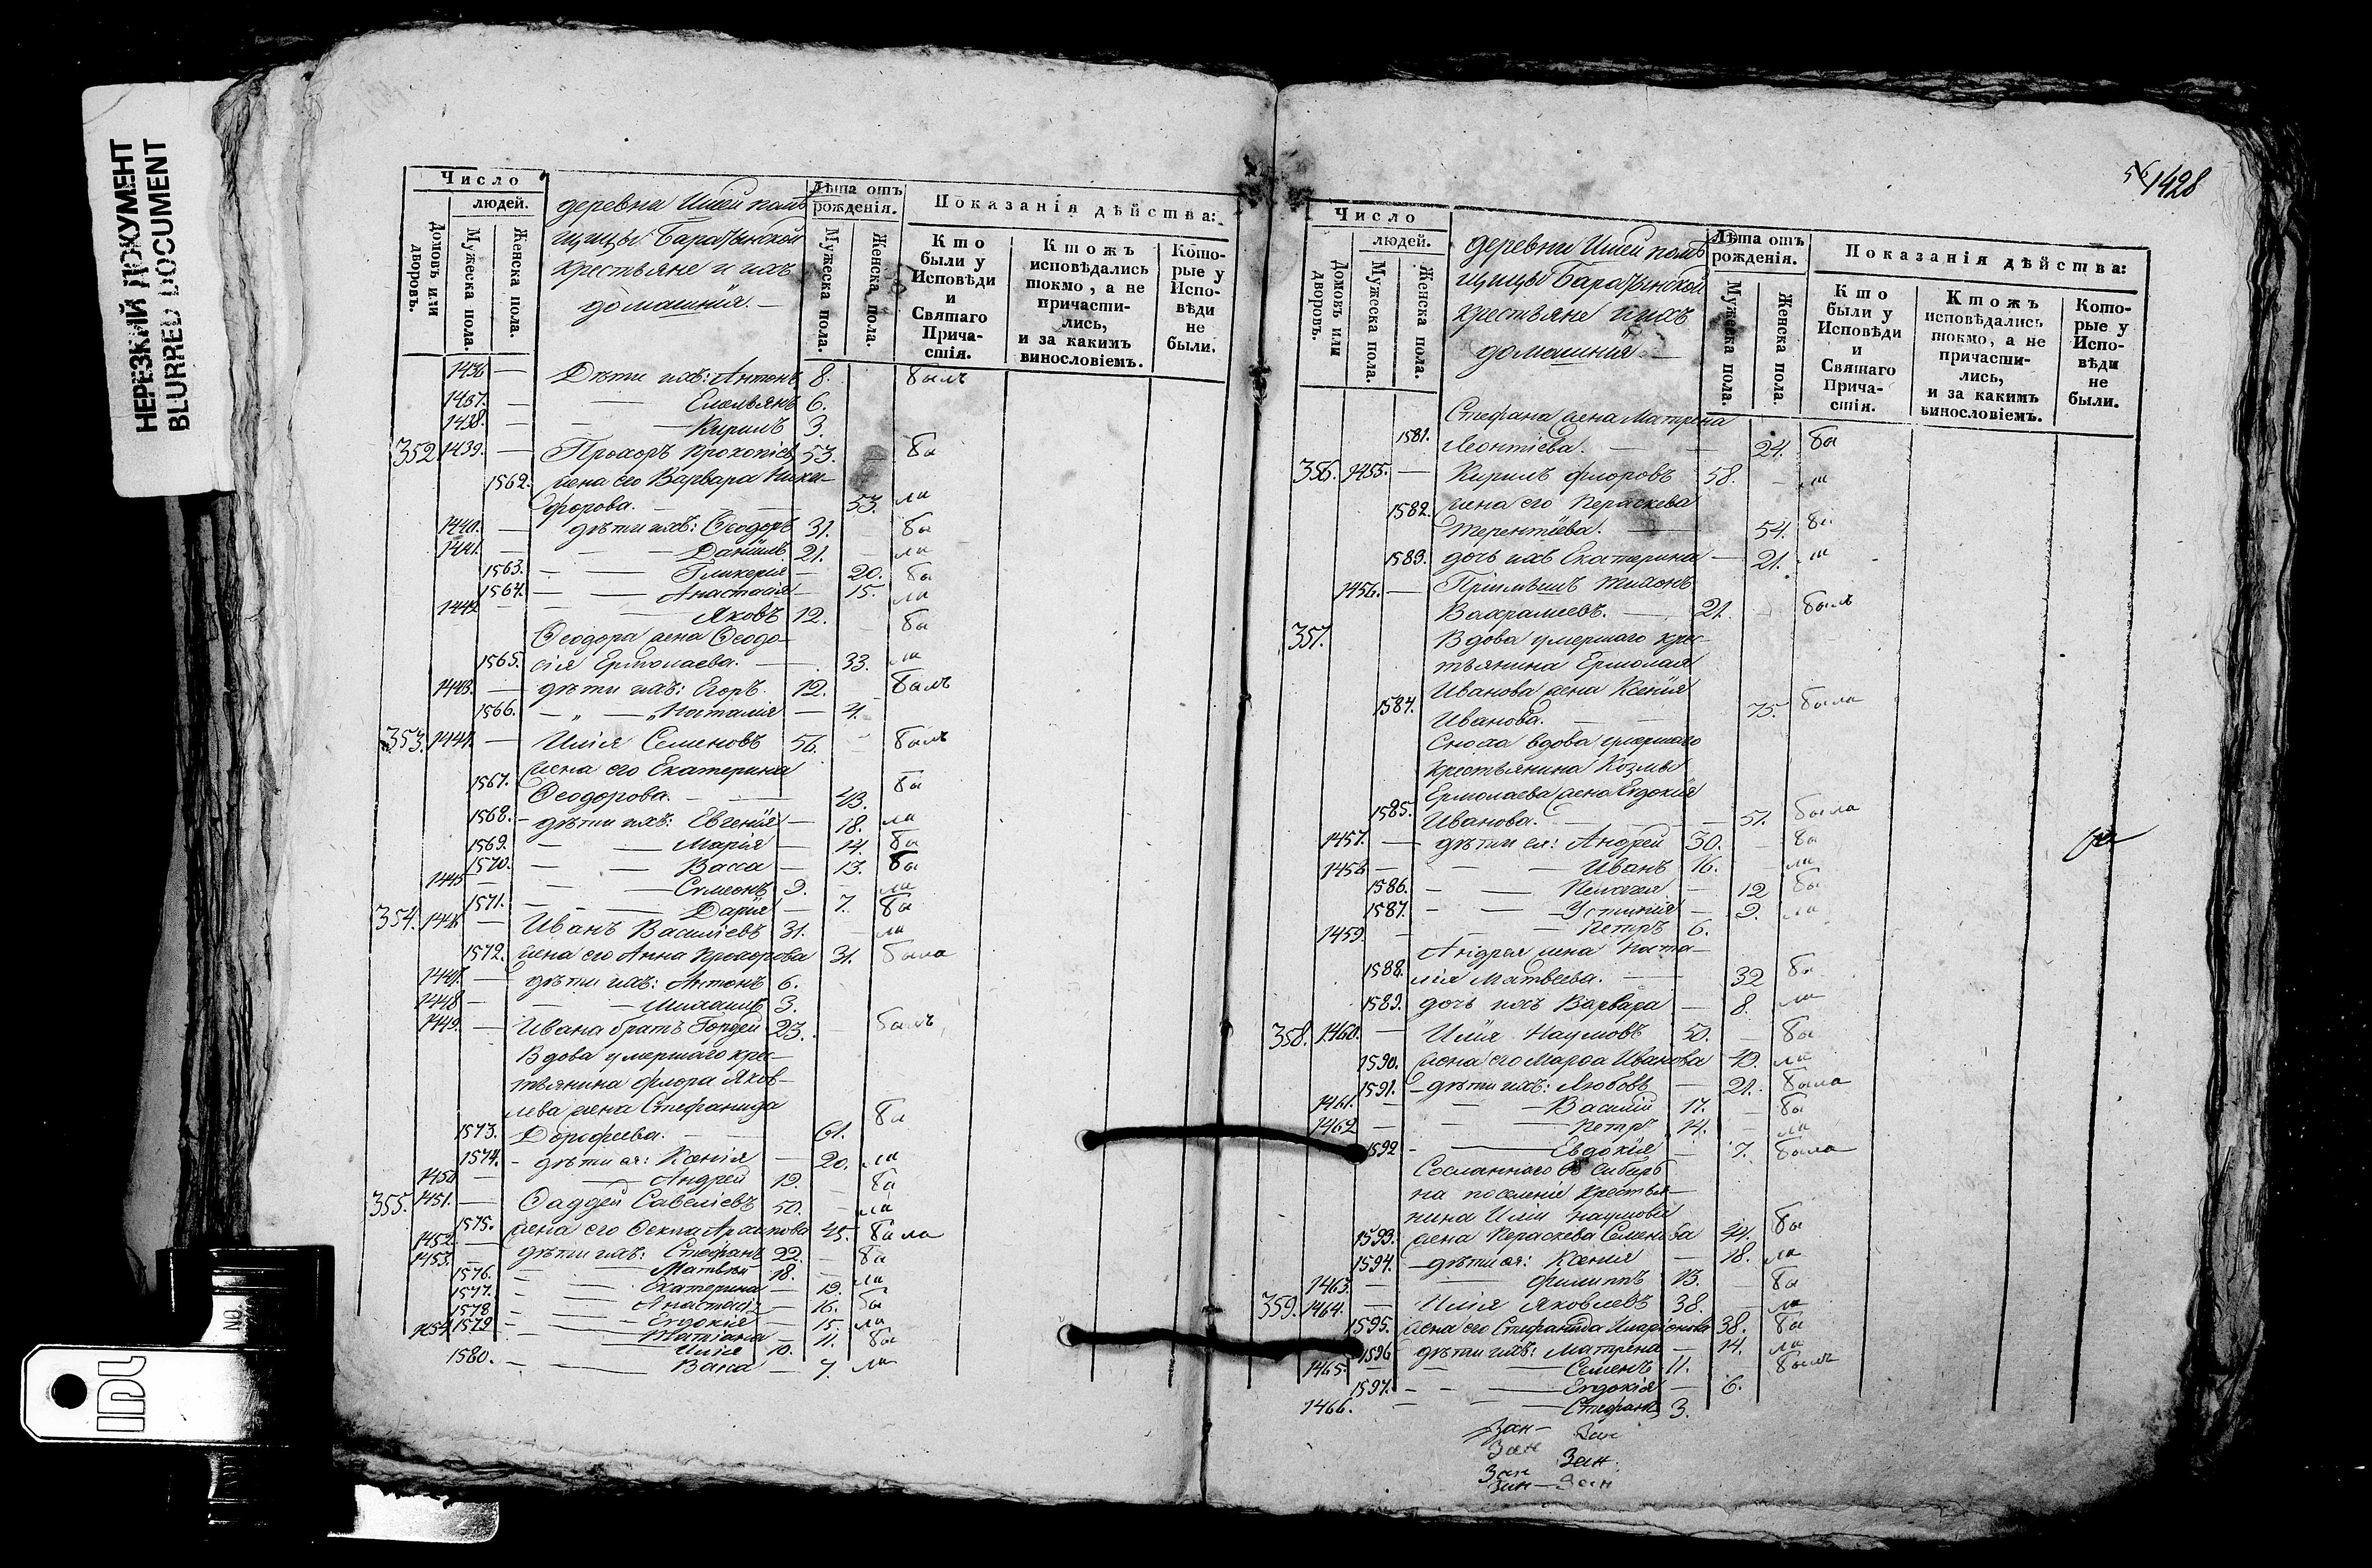 НЕРЕЗКИЙ ДОКУМЕНТ
BLURRED DOCUMENT
Число
людей.
Домовъ или дворовъ.
Мужеска пола.
Женска пола.
деревни
щицы
крестьяне и ихъ
домашнія. —
Лѣта отъ рожденія.
Мужеска пола.
Женска пола.
Показанія дѣйства:
Кто были у Исповѣди и Святаго Причастія.
Ктожъ исповѣдались токмо, а не причастились, и за какимъ винословіемъ.
Которые у Исповѣди не были.
1436 — Дѣти ихъ: Антонъ 8. былъ
1437. — — Емельянъ 6.
1438. — — Кирилъ 3.
352. 1439. — Прохоръ Прокопіев 53. бы
1562. жена его Варвара Ники-
форова. — 53. ла
1440. — дѣти ихъ: Ѳеодоръ 31. бы
1441. — — Даніилъ 21. ла
1563. — — Гликерія — 20. бы
1564. — — Анастасія — 15. ла
1442 — — Яковъ 12. бы
Ѳеодора жена Ѳеодо-
1565. сія Ермолаева. — 33. ла
1443. — дѣти ихъ: Егоръ 12. былъ
1566. — „ — „ Наталія — 4.
353. 1444. — Илія Семеновъ 56. былъ
жена его Екатерина
1567. Ѳеодорова. — 43. бы
1568. — дѣти ихъ: Евгенія — 18. ла
1569. — — Марія — 14. бы
1570. — — Васса — 13. бы
1445 — — Симеонъ 9. ла
1571. — — Дарія — 7. бы
354. 1446 — Иванъ Василіевъ 31. ла
1572. жена его Анна Прохорова 31. была
1447. — дѣти ихъ: Антонъ 6.
1448 — — Михаилъ 3.
1449. — Ивана братъ Гордей 23. былъ
Вдова умершаго кре-
тьянина Флора Яков-
лева жена Стефанида
1573. Дорофеева. — 61. бы
1574. — дѣти ея: Ксенія — 20. ла
1450 — — Андрей 19. бы
355. 1451. — Ѳаддей Савеліевъ 50. ла
1575. жена его Ѳекла Архипова 45. была
1452. — дѣти ихъ: Стефанъ 22. бы
1453. — — Матвѣй 18. ла
1576. — — Екатерина — 19. бы
1577. — — Анастасія — 16. ла
1578 — — Евдокія — 15. бы
1579 — — Татіана — 11. ла
1454 — — Илія 10.
1580. — — Васса — 7. ла
1428
Число
людей.
Домовъ или дворовъ.
Мужеска пола.
Женска пола.
деревни
щицы
крестьяне и ихъ
домашнія —
Лѣта отъ рожденія.
Мужеска пола.
Женска пола.
Показанія дѣйства:
Кто были у Исповѣди и Святаго Причастія.
Ктожъ исповѣдались токмо, а не причастились, и за какимъ винословіемъ.
Которые у Исповѣди не были.
Стефана жена Матрена
1581. Леонтіева. — — 24. бы
356. 1455. — Кирилъ Флоровъ 58. — ла
1582. жена его Пераскева
Терентіева. — 54. бы
1583. дочь ихъ Екатерина — 21. ла
1456. — Пріимышъ Тихонъ
Вахрамеевъ. — 21. былъ
357. Вдова умершаго крес-
тьянина Ермолая
Иванова жена Ксенія
1584. Иванова. — — 75. была
Сноха вдова умершаго
крестьянина Козмы
Ермолаева жена Евдокія
1585. Иванова. — — 51. была
1457. — дѣти ея: Андрей 30. — бы
1458 — — Иванъ 16. — ла
1586. — — Пелагія — 12 бы
1587. — — Устинія — 9. ла
1459. — — Петръ 6.
Андрея жена Ната-
1588. лія Матвѣева. — 32 бы
1589. дочь ихъ Варвара — 8. ла
358. 1460. — Илія Наумовъ 50. — бы
1590. жена его Марѳа Иванова 49. ла
1591. — дѣти ихъ: Любовь — 21. была
1461. — — Василій 17. — бы
1462 — — Петръ 14. — ла
1592 — — Евдокія — 7. была
Сосланного въ Сибирь
на поселеніе крестья-
нина Иліи Наумова
1593. жена Пераскева Семенова 44. бы
1594. — дѣти ея: Ксенія — 18. ла
1463. — — Филиппъ 13. бы
359. 1464. — Илія Яковлевъ 38. — ла
1595. жена его Стефанида Иларіонова 38. бы
1596 дѣти ихъ: Матрена — 14. ла
1465. — — Семенъ 11. былъ
1597. — — Евдокія — 6.
1466. — — Стефанъ 3.
Зан— Зан
Зан Зан.
Зан
Зан— Зан
IDL
NO